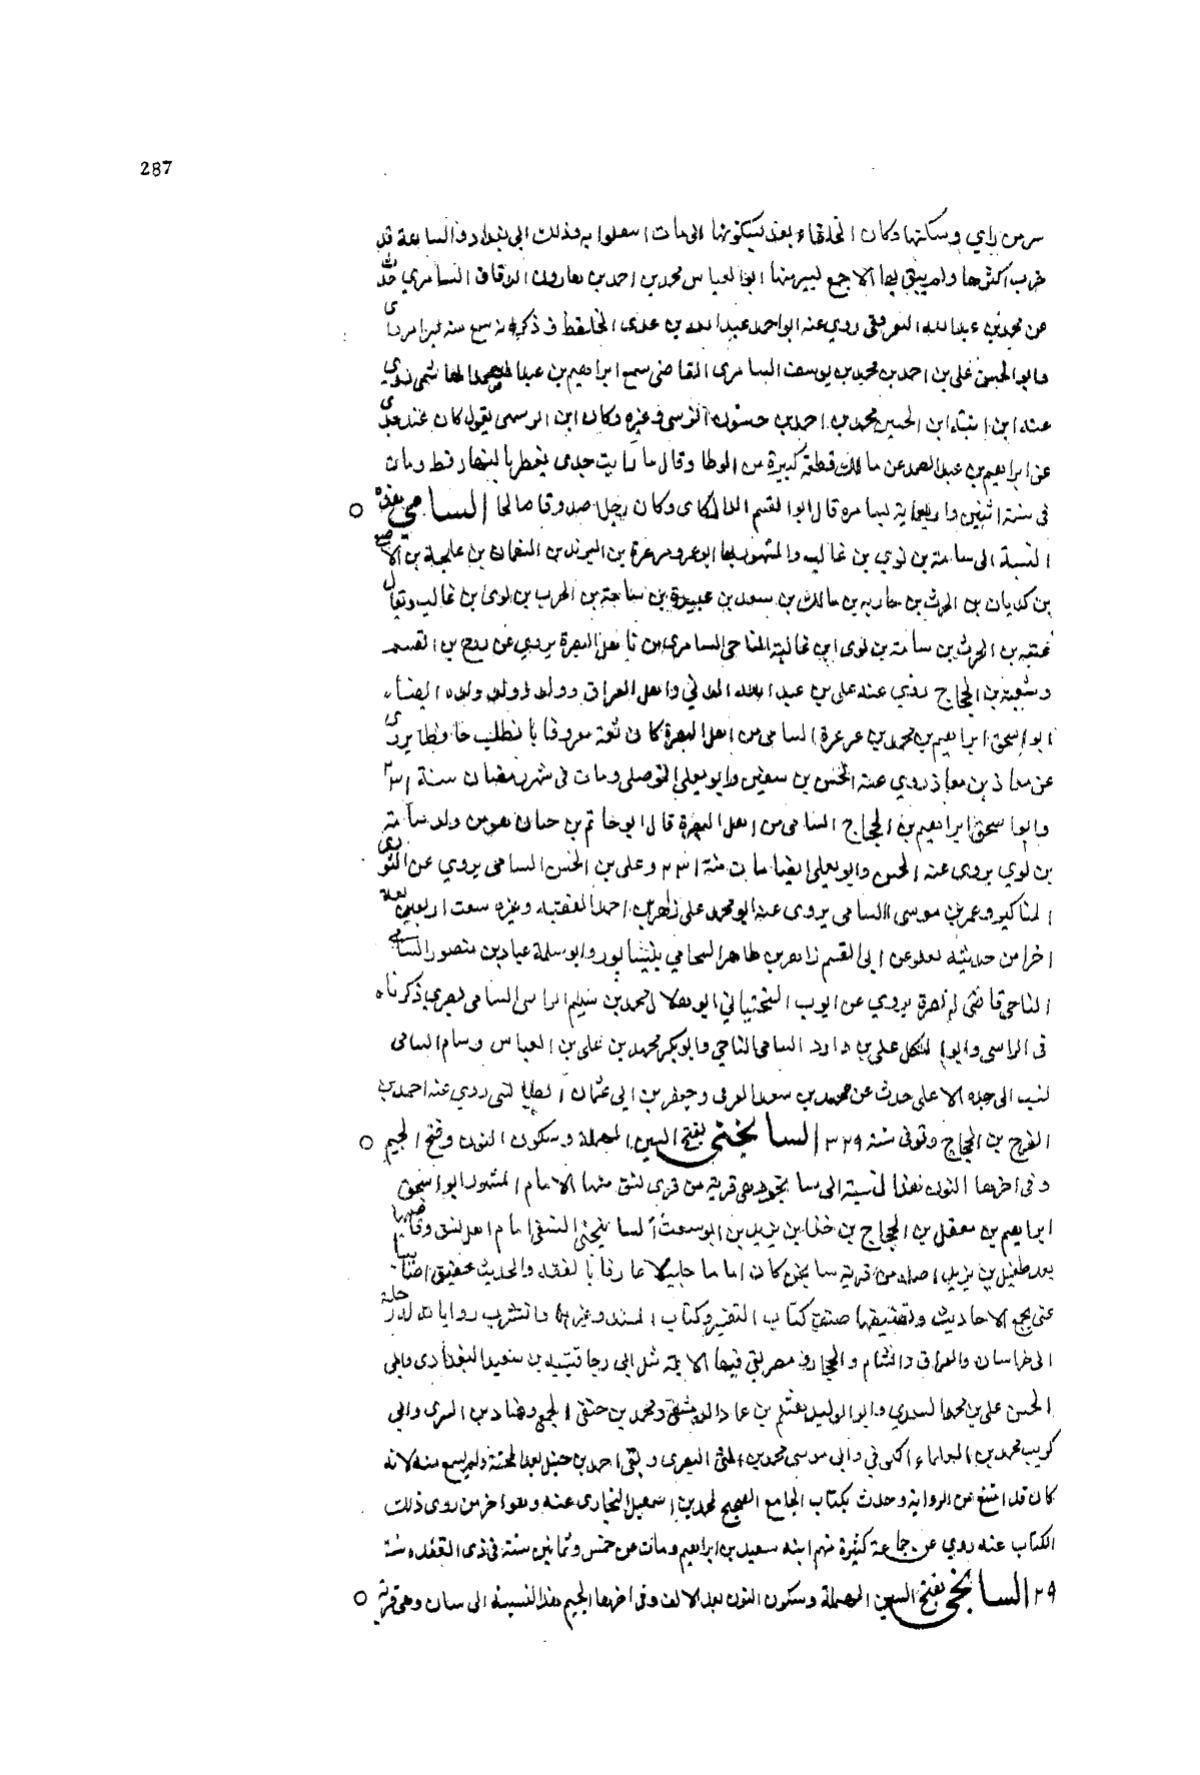 287
سر من راي وسكنها وكان الخلفاء بعد يسكونها الى مات انتقلوا بعد ذلك الى بغداد والساعة قد
خرب اكثرها ولم يبق بها الا جمع يسير منها ابو العباس محمد بن احمد بن هارون الدقاق السامري حدث
عن محمد بن عبد الله روي عنه ابو احمد عبد الله بن عدى الحافظ ذكر انه سمع منه بسر من راى
وابو الحسن على بن احمد بن محمد بن يوسف السامرى القاضى سمع ابراهيم بن عبد الصمد الهاشمى روى
عنه ابن ابنته ابن الحسين محمد بن احمد بن حسنون النرسى وغيره وكان ابن النرسى يقول كان عند جدى
عن ابراهيم بن عبد الصمد عن مالك قطعة كبيرة من الموطا وقال ما رايت جدى يفطر بالنهار قط ومات
فى سنة اثنين واربعماية بسامره قال ابو القسم اللالكاى وكان رجل صدوقا صالحا السامي بهذه ○
النسبة الى سامة بن لوي بن غالب والمشهور بها ابو عمرو عرعرة بن البرند بن النعمان بن علجة بن الا
بن كديان بن الحرث بن حاربه بن مالك بن سعد بن عبيدة بن سامة بن الحرب بن لوى بن غالب ويقال
عقبه بن الحرث بن سامة بن لوى ابن غالب الناجى السامرى من اهل البصرة يروي عن روح بن القسم
وشعبة بن الحجاج روي عنه على بن عبد الله المدنى واهل العراق وولد وولد ولده ايضاء
ابو اسحق ابراهيم بن محمد بن عرعرة السامى من اهل البصرة كان ثقة معروفا بالطلب حافظا يروى
عن معاذ بن معاذ روي عنه الحسن بن سفين وابو يعلى الموصلى ومات فى شهر رمضان سنة ٢٣١
وابو اسحق ابراهيم بن الحجاج السامى من اهل البصرة قال ابو حاتم بن حبان هو من ولد سامة
بن لوي يروى عنه الحسن وابو يعلى ايضا مات سنة ٢٣١ وعلى بن الحسن السامى يروي عن الثورى
المناكير وعمر بن موسى السامى يروى عنه ابو محمد على احمد الفقيه وغيره سمعت اربعة
اخرا من حديثه بعلو عن ابى القسم زاهر بن طاهر السحامي بنيسابور وابو سلمة عباد بن منصور السامي
الناجى قاضى البصرة يروي عن ايوب السختياني ابو هلال محمد بن سليم الراسى السامى بصرى ذكرناه
فى الراسى وابو المتوكل على بن داود السامى الناجي وابو بكر محمد بن على بن العباس وسام السامى
نسب الى جده الاعلى حدث عن محمد بن سعد العوفى وجعفر بن ابى عثمان الطيالسى روي عنه احمد بن
الفرج بن الحجاج وتوفى سنة ٣٢٩ السانجنى بفتح السين المهملة وسكون النون وفتح الجيم ○
وفى اخرها النون هذا نسبة الى سانجن وهى قرية من قرى نسف منها الامام المشهور ابو اسحق
ابراهيم بن معقل بن الحجاج بن خداش بن يزيد بن البوسعث السانجنى النسفى امام اهل نسف وقاضيها
بعد طفيل بن يزيد اصله من قرية سانجن كان اماما جليلا عارفا بالفقه والحديث عفيف صاينا
عنى بجمع الاحاديث وتصنيفها صنف كتاب التفسير وكتاب المسند وغيرها وانتشرت رواياته له رحلة
الى خراسان والعراق والشام والحجاز ومصر لقى فيها الايمة مثل ابى رجا قتيبه بن سعيد البغدادى وابى
الحسن على بن محمد السعدي وابو الوليد هشام بن عمار الدمشقى ومحمد بن مصفى الحمصى وهناد بن السرى وابى
كريب محمد بن العلاء الكوفي وابى موسى محمد بن المثنى البصرى ولقى احمد بن حنبل بعد المحنة ولم يسمع منه لانه
كان قد امتنع من الرواية وحدث بكتاب الجامع الصحيح لمحمد بن اسمعيل البخارى عنه وهو اخر من روى ذلك
الكتاب عنه روي عن جماعة كثيرة منهم ابنه سعيد بن ابراهيم ومات عن خمس وثمانين سنة فى ذى القعده سنة
٢٩ السانجى بفتح السين المهملة وسكون النون بعد الالف وفى اخرها الجيم هذا النسبة الى سان وهى قرية ○